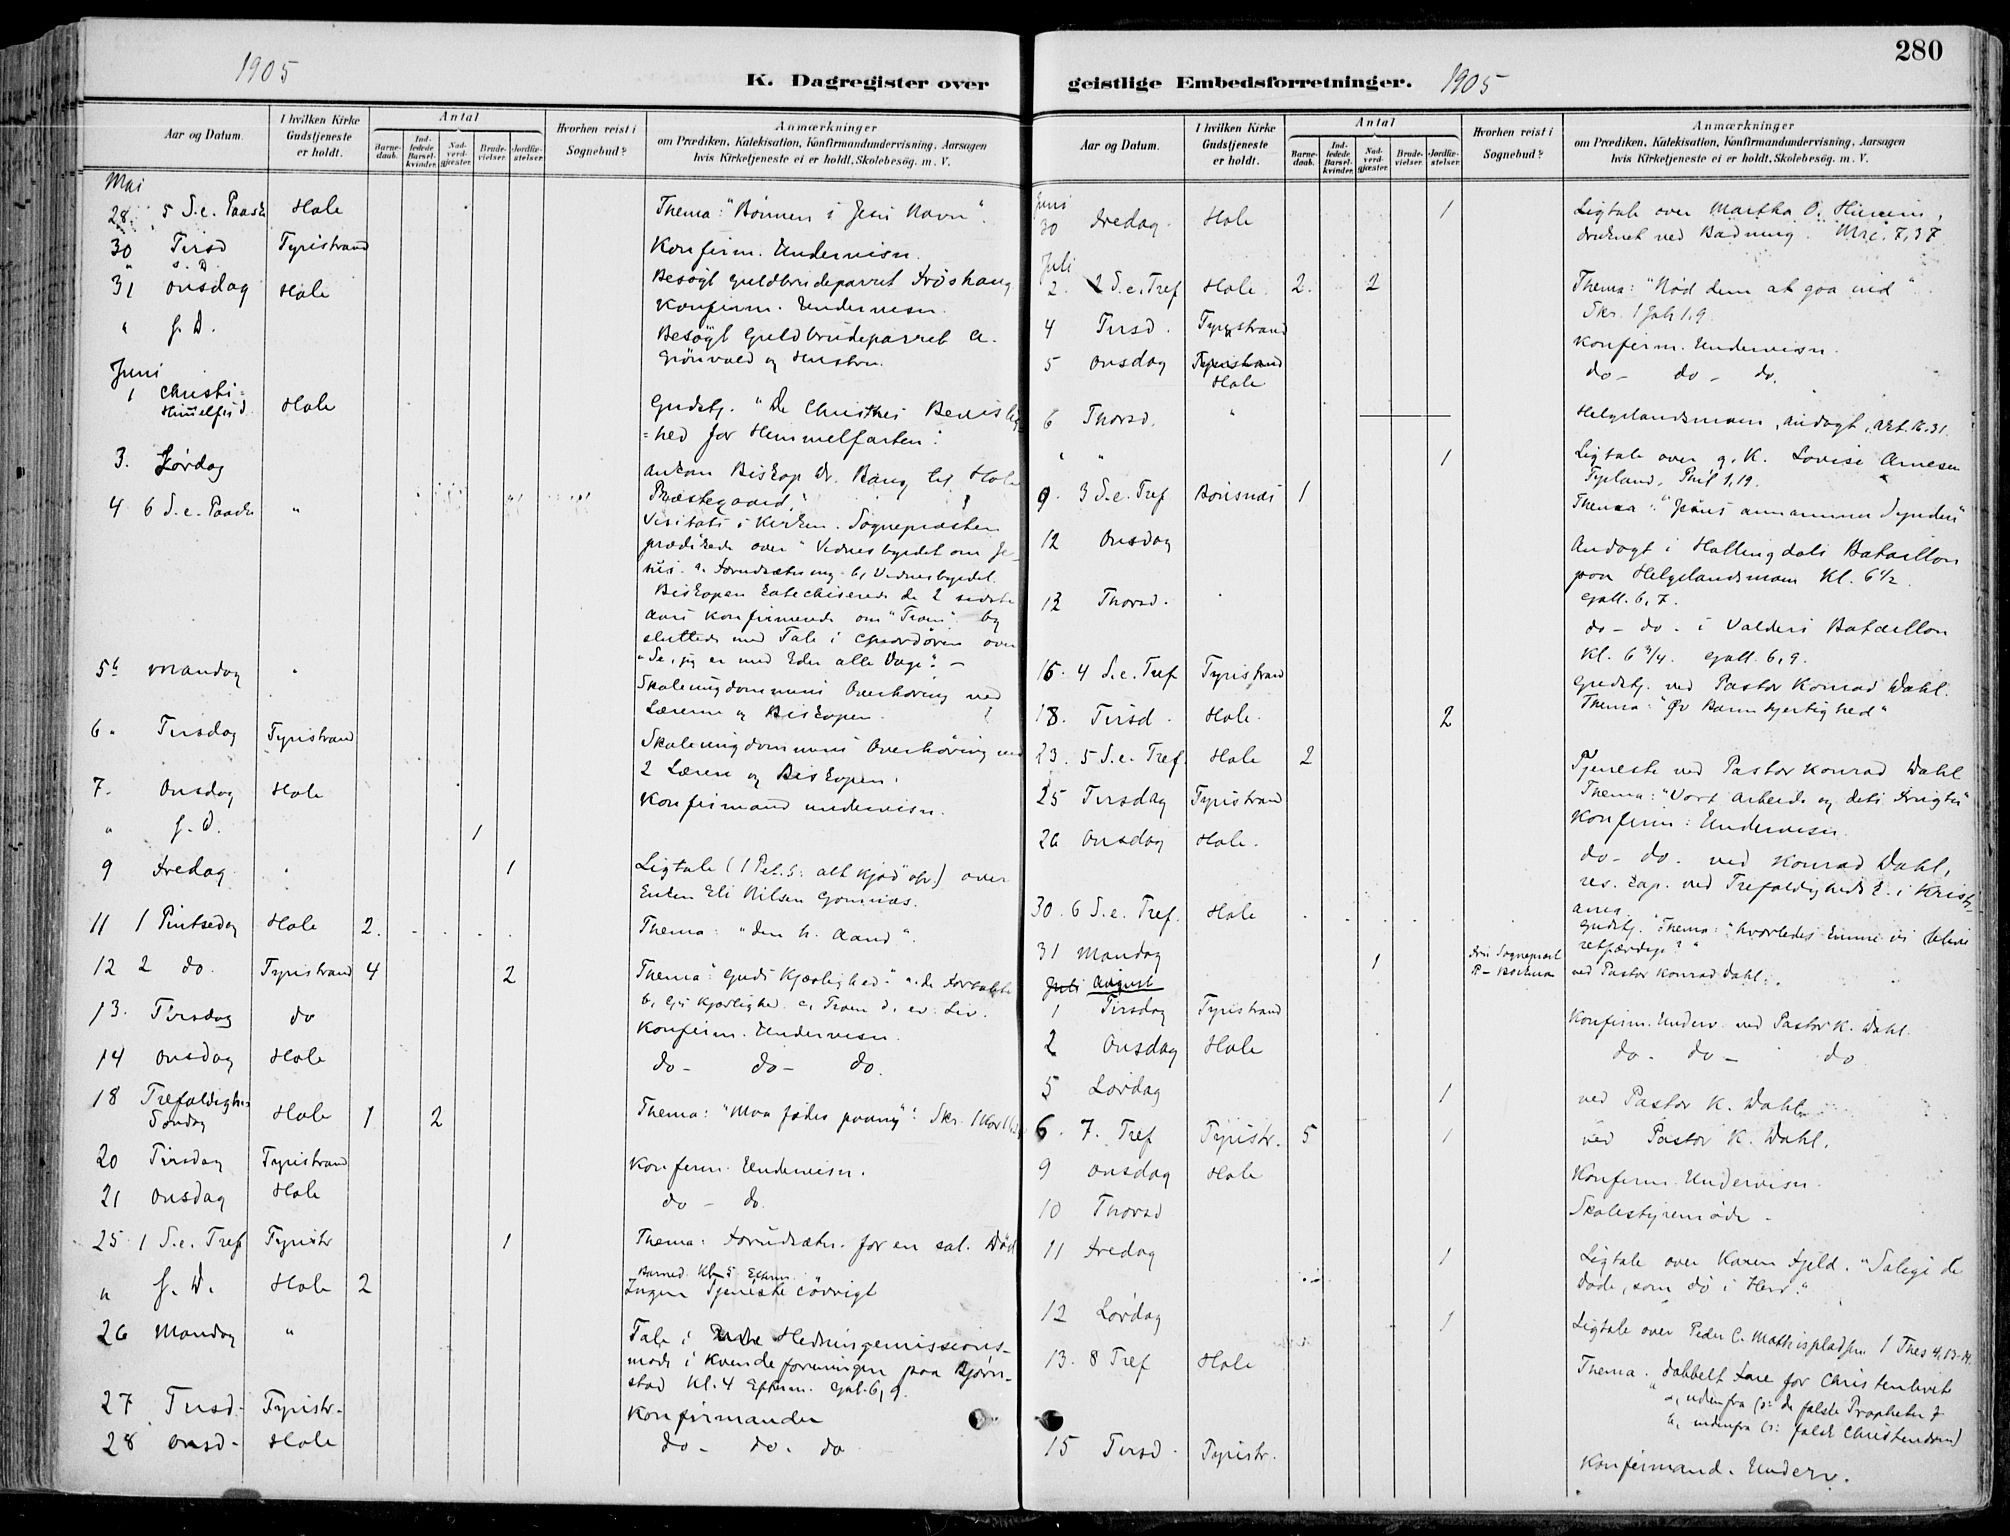 1905
K. Dagregister over
Aar og Datum.
I hvilken Kirke Gudstjeneste er holdt.
Antal
Barnedaab.
Indledede Barselkvinder.
Nadverdgjæster.
Brudevielser.
Jordfæstelser.
Hvorhen reist i Sognebud?
Anmærkninger
om Prædiken, Katekisation, Konfirmandundervisning, Aarsagen
hvis Kirketjeneste ei er holdt, Skolebesøg. m. V.
Mai
28. 5 S. e. Paaske Hole Thema: "Bønnen i Jesu Navn".
30 Tirsd Tyristrand Konfirm. Undervisn.
" s. D. Besøgt Guldbrudeparret Frøshaug
31 Onsdag Hole Konfirm. Undervisn.
" s. D. Besøgt Guldbrudeparret A.
Grönvold og Hustru.
Juni
1 Christi Himmelfrd. Hole Gudstj. "De Christnes
=hed for Himmelfarten".
3. Lørdag Ankom Biskop Dr. Bang til Hole
Præstegaard.
4 6 S. e. Paaske " Visitats i Kirken. Sognepræsten
prædikede over "Vidnesbyrdet om Je-
sus. a. Forudsætning b, Vidnesbyrdet.
Biskopen katechiserede de 2 sidste
Aars Konfirmerede om "Troen". og
sluttede med Tale i Chordøren over
"Se, jeg er med Eder alle Dage". –
5te Mandag " Skoleungdommens Overhøring ved
Lærerne og Biskopen.
6 " Tirsdag Tyristrand Skoleungdommens Overhøring ved
2 Lærere og Biskopen.
7. Onsdag Hole Konfirmand undervisn.
" s. D. 1
9 Fredag " 1 Ligtale (1 Pet. 5: alt kjød osv.) over
Enken Eli Nilsen Gomnæs.
11 1 Pintsedag Hole 2. Thema: "Den h. Aand".
12 2 do. Tyristrand 4 2 Thema "Guds Kjærlighed".
13. Tirsdag do Konfirm. Undervisn.
14 Onsdag Hole do – do – do.
18 Trefoldigheds Søndag Hole 1 2 Thema: "Maa fødes paany". Skr. 1 Kor
20 Tirsdag Tyristrand Konfirm. Undervisn.
21 Onsdag Hole do – do.
25 1 S. e. Tref Tyristr 1 Thema: Forudsætn. for en sal. Død
" s. D. Hole 2 Barned. Kl. 5 Efterm.
Ingen Tjeneste iøvrigt
26 Mandag " Tale i Hedningemissions-
møde i Kvindeforeningen paa Bjørn-
stad Kl. 4 Efterm. Gal. 6, 9.
27 Tirsd. Tyristr. Konfirmander
28 Onsd. Hole do – do. do
280
geistlige Embedsforretninger. 1905
Aar og Datum.
I hvilken Kirke Gudstjeneste er holdt.
Antal
Barnedaab.
Indledede Barselkvinder.
Nadverdgjæster.
Brudevielser.
Jordfæstelser.
Hvorhen reist i Sognebud?
Anmærkninger
om Prædiken, Katekisation, Konfirmandundervisning, Aarsagen
hvis Kirketjeneste ei er holdt, Skolebesøg. m. V.
Juni
30 Fredag. Hole 1 Ligtale over Martha O.
druknet ved Badning. Mrc. 7, 37
Juli
2. 2 S. e. Tref Hole. 2. 2 Thema: "Nød dem at gaa ind".
Skr. 1 Joh 1, 9.
4 Tirsd. Tyristrand Konfirm. Undervisn.
5 Onsdag Tyristrand Hole do – do – do.
6 Thorsd. " Helgelandsmoen, Andagt, Akt. 16. 31.
" " 1 Ligtale over g. K. Lovise Arnesen
Fyeland, Phil 1, 19.
9. 3 S. e. Tref Bønsnæs 1 Thema: "Jesus annammer Syndere"
12 Onsdag Andagt i Hallingdals Bataillon
paa Helgelandsmoen Kl. 6½.
Gall. 6, 7.
13 Thorsd. do – do. i Valders Bataillon
Kl. 6¾. Gall. 6, 9.
16. 4 S. e. Tref Tyristrand Gudstj. ved Pastor Konrad Dahl.
Thema: "Øv Barmhjertighed"
18. Tirsd. Hole. 2
23. 5 S. e. Tref. Hole 2 Tjeneste ved Pastor Konrad Dahl
Thema: "Vort Arbeide og dets Frugter"
25 Tirsdag Tyristrand Konfirm: Undervisn.
26 Onsdag Hole. do – do. ved Konrad Dahl,
res. Kap. ved Trefoldigheds K. i Kristi-
ania.
30. 6 S. e. Tref. Hole Gudstj. Thema: "hvorledes kunne vi blive
retfærdige?"
31 Mandag 1 ved Pastor Konrad Dahl.
Juli August
1 Tirsdag Tyristrand Konfirm. Underv. ved Pastor K. Dahl.
2 Onsdag Hole do. do – do
5 Lørdag 1 ved Pastor K. Dahl
6. 7. Tref Tyristr. 5 1 ved Pastor K. Dahl.
9 Onsdag Hole Konfirm. Undervisn.
10 Thorsd Skolestyremøde –
11 Fredag 1 Ligtale over Karen Fjeld. "Salige de
Døde, som dø i Herr."
12 Lørdag 1 Ligtale over Peder C. Mattisplassen 1 Thes 4, 13-14.
13. 8 Tref Hole Thema. Dobbelt Fare for Christenlivet
a, udenfra (o: de falske Propheter)
b, indenfra (o: falsk Christendom)
15 Tirsd. Tyristr. Konfirmand. Underv.